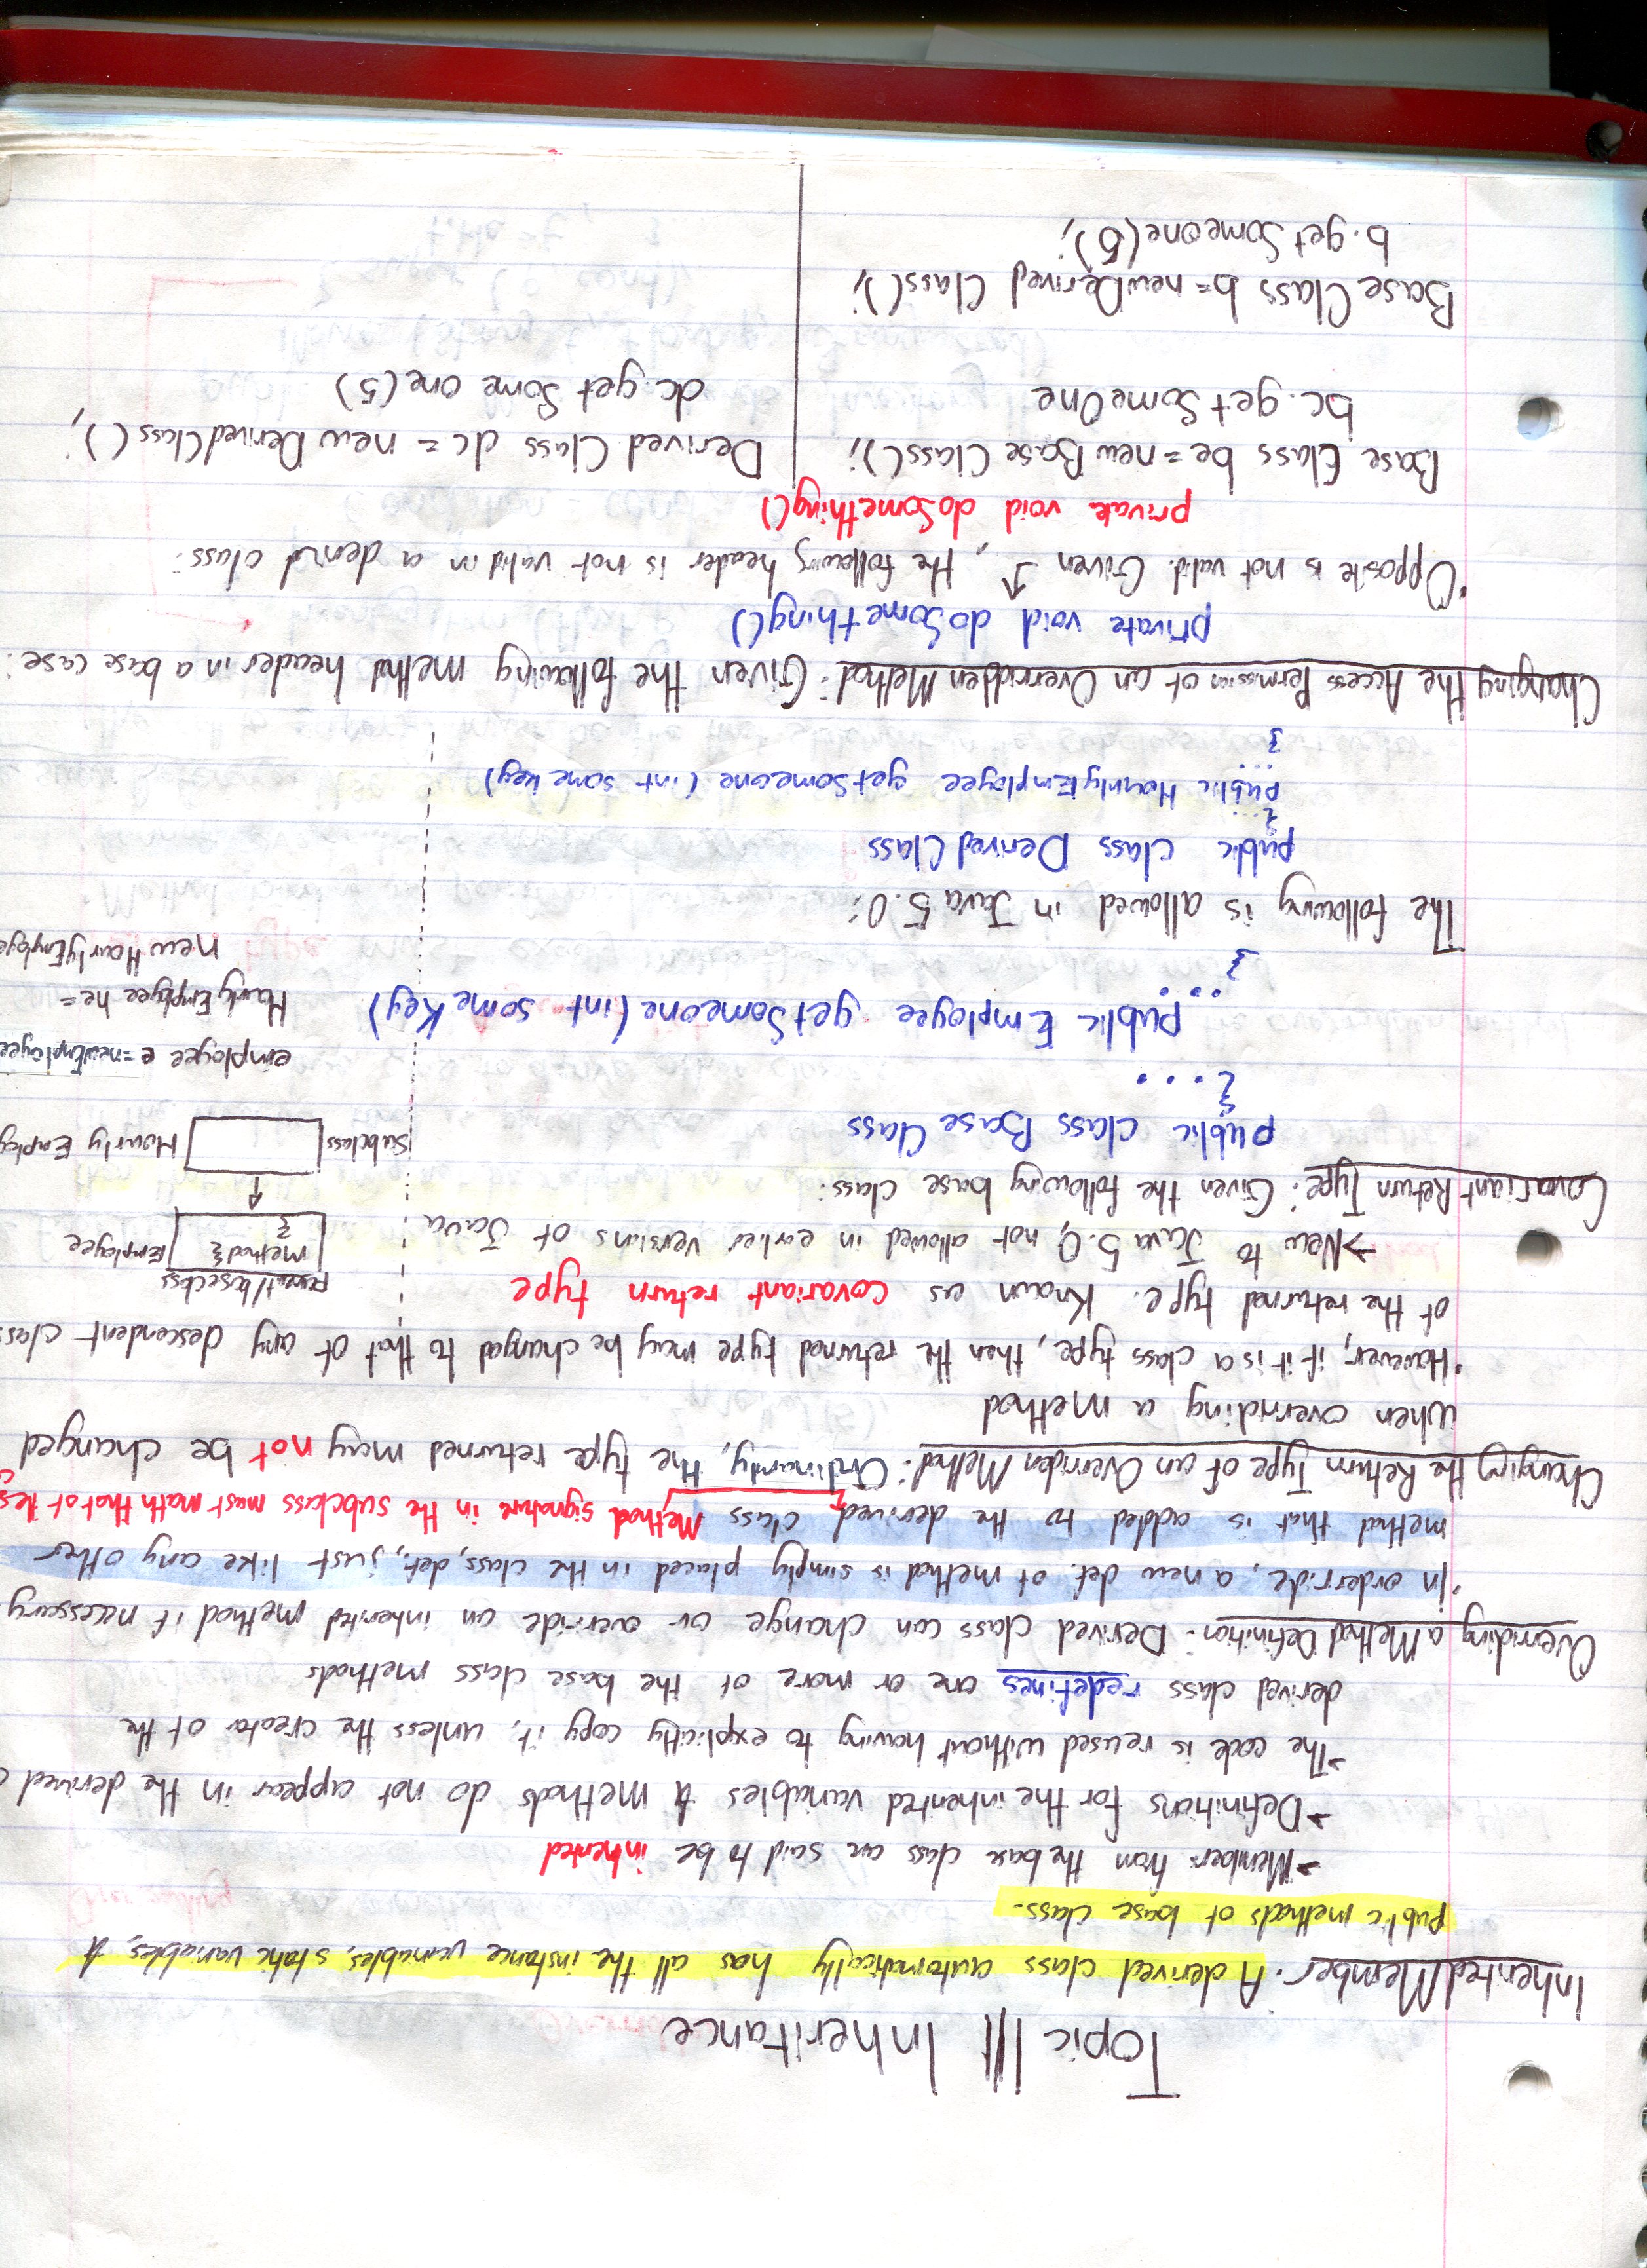 Topic III Inheritance
Inherited Member: A derived class automatically has all the instance variables, static variables, &
public methods of base class.
→Members from the base class are said to be inherited
→Definitions for the inherited variables & methods do not appear in the derived
→The code is reused without having to explicitly copy it, unless the creator of the
derived class redefines one or more of the base class methods
Overriding a Method Definition: Derived class can change or override an inherited method if necessary
•In orderride, a new def. of method is simply placed in the class, def., just like any other
method that is added to the derived class Method signature in the subclass must math that of
Changing the Return Type of an Overriden Method: Ordinarily, the type returned may not be changed
when overriding a method
•However, if it is a class type, then the returned type may be changed to that of any descendent clas
of the returned type. Known as covariant return type
→New to Java 5.0, not allowed in earlier versions of Java
parent/baseclass
method {
}
Employee
Covariant Return Type: Given the following base class:
Subclass
Hourly Employ
public class Base Class
{ ...
employee e = newEmployee
public Employee getSomeone (int someKey)
...
}
HourlyEmployee he =
new HourlyEmploye
The following is allowed in Java 5.0:
public class DerivedClass
{ ...
public HourlyEmployee getSomeone (int some key)
...
}
Changing the Access Permission of an Overridden Method: Given the following method header in a base case:
private void doSomething()
•Opposite is not valid. Given ↑, the following header is not valid in a derivd class:
private void doSomething()
Base Class bc = new Base Class();
bc.getSomeOne
Derived Class dc = new DerivedClass();
dc.get Some one (5)
Base Class b = newDerived Class();
b.get Someone(5);